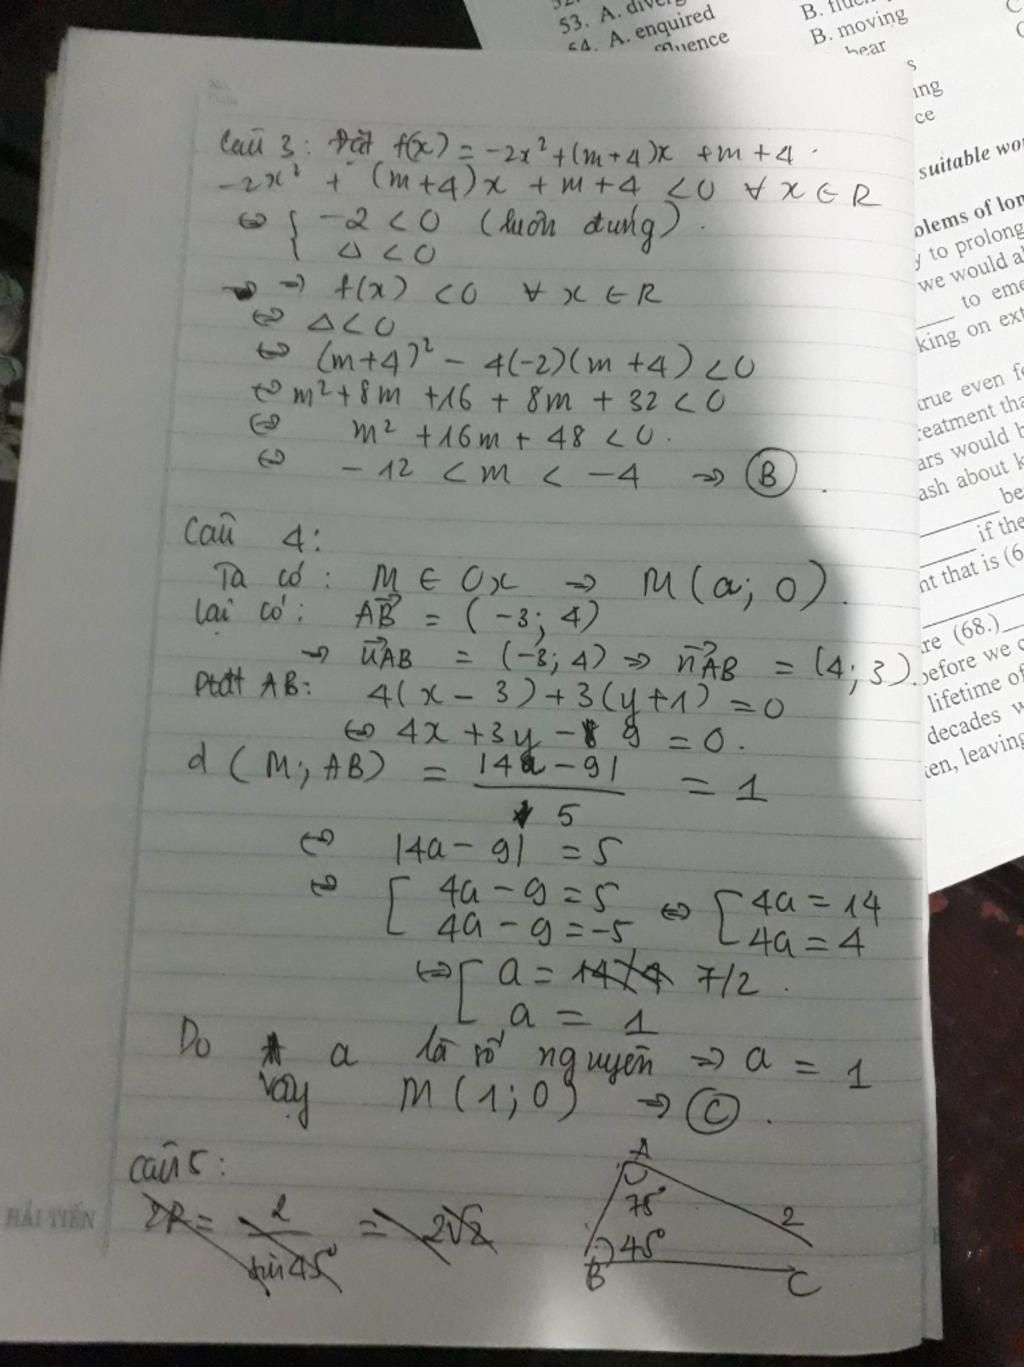 53. A.
B.
54. A. enquired
B. moving
bear
ing
ce
suitable
blems of
y to prolong
we would
to
king on
true even
reatment
ars would
ash about
be
if the
nt that is
re (68.)
before we
lifetime of
decades
ten, leaving
Câu 3: Đặt f(x) = -2x² + (m+4)x + m + 4.
-2x² + (m+4)x + m + 4 < 0 ∀ x ∈ R
⇔ { -2 < 0 (luôn đúng).
Δ < 0
→ f(x) < 0 ∀ x ∈ R
⇔ Δ < 0
⇔ (m+4)² - 4(-2)(m+4) < 0
⇔ m² + 8m + 16 + 8m + 32 < 0
⇔ m² + 16m + 48 < 0.
⇔ -12 < m < -4 ⇒ B.
Câu 4:
Ta có: M ∈ Ox ⇒ M(a; 0).
Lại có: AB⃗ = (-3; 4)
→ u⃗AB = (-3; 4) ⇒ n⃗AB = (4; 3).
Ptđt AB: 4(x - 3) + 3(y + 1) = 0
⇔ 4x + 3y - 9 = 0.
d(M; AB) = |4a - 9| / 5 = 1
⇔ |4a - 9| = 5
⇔ [ 4a - 9 = 5 ⇔ [ 4a = 14
4a - 9 = -5 4a = 4
⇔ [ a = 14/4 7/2.
a = 1
Do a là số nguyên ⇒ a = 1
Vậy M(1; 0) ⇒ C.
Câu 5:
2R = 2 / sin 45° = 2√2
A
75°
2
45°
B
C
HẢI TIẾN